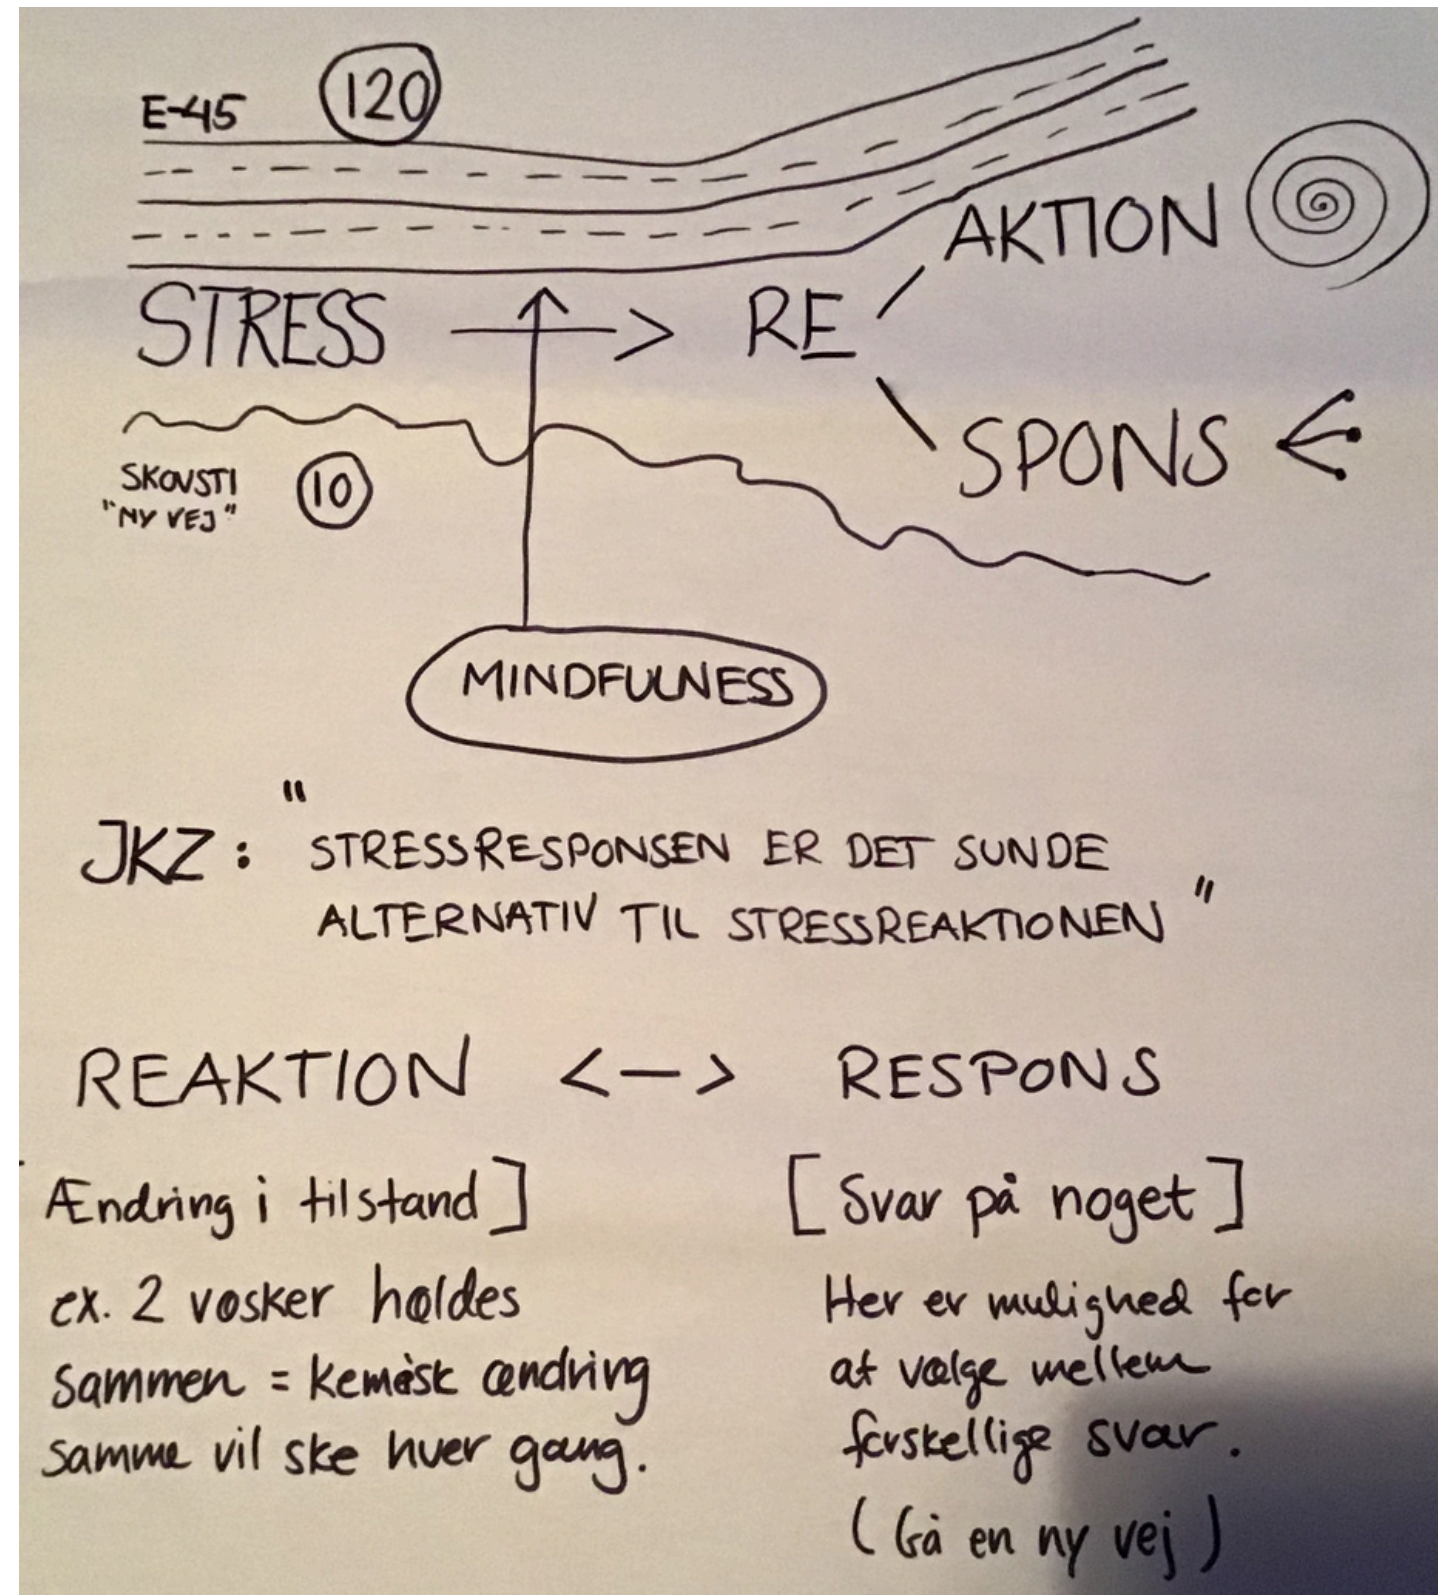 E-45 120
AKTION
STRESS —> RE
SPONS
SKOVSTI 10
"NY VEJ"
MINDFULNESS
JKZ: "STRESSRESPONSEN ER DET SUNDE
ALTERNATIV TIL STRESSREAKTIONEN"
REAKTION <—> RESPONS
Ændring i tilstand] [Svar på noget]
ex. 2 væsker hældes
sammen = kemisk ændring
samme vil ske hver gang.
Her er mulighed for
at vælge mellem
forskellige svar.
(Gå en ny vej)